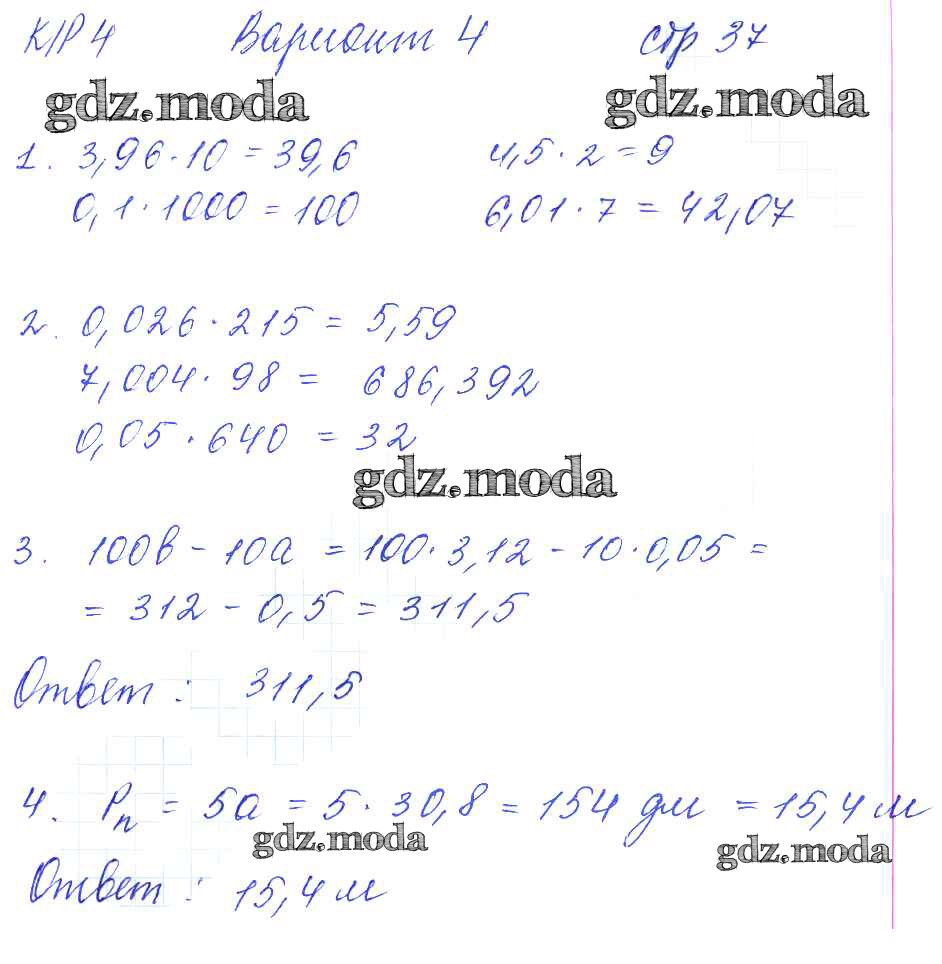 К/Р 4 Вариант 4 стр 37
gdz.moda gdz.moda
1. 3,96 · 10 = 39,6 4,5 · 2 = 9
0,1 · 1000 = 100 6,01 · 7 = 42,07
2. 0,026 · 215 = 5,59
7,004 · 98 = 686,392
0,05 · 640 = 32
gdz.moda
3. 100в - 10а = 100 · 3,12 - 10 · 0,05 =
= 312 - 0,5 = 311,5
Ответ : 311,5
4. Pп = 5а = 5 · 30,8 = 154 дм = 15,4 м
gdz.moda gdz.moda
Ответ : 15,4 м